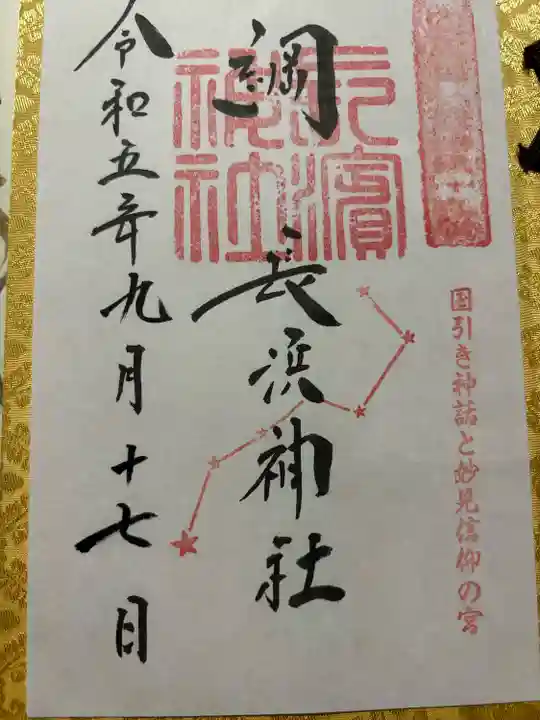 国引き神話と妙見信仰の宮
長濱神社
長浜神社
令和五年九月十七日